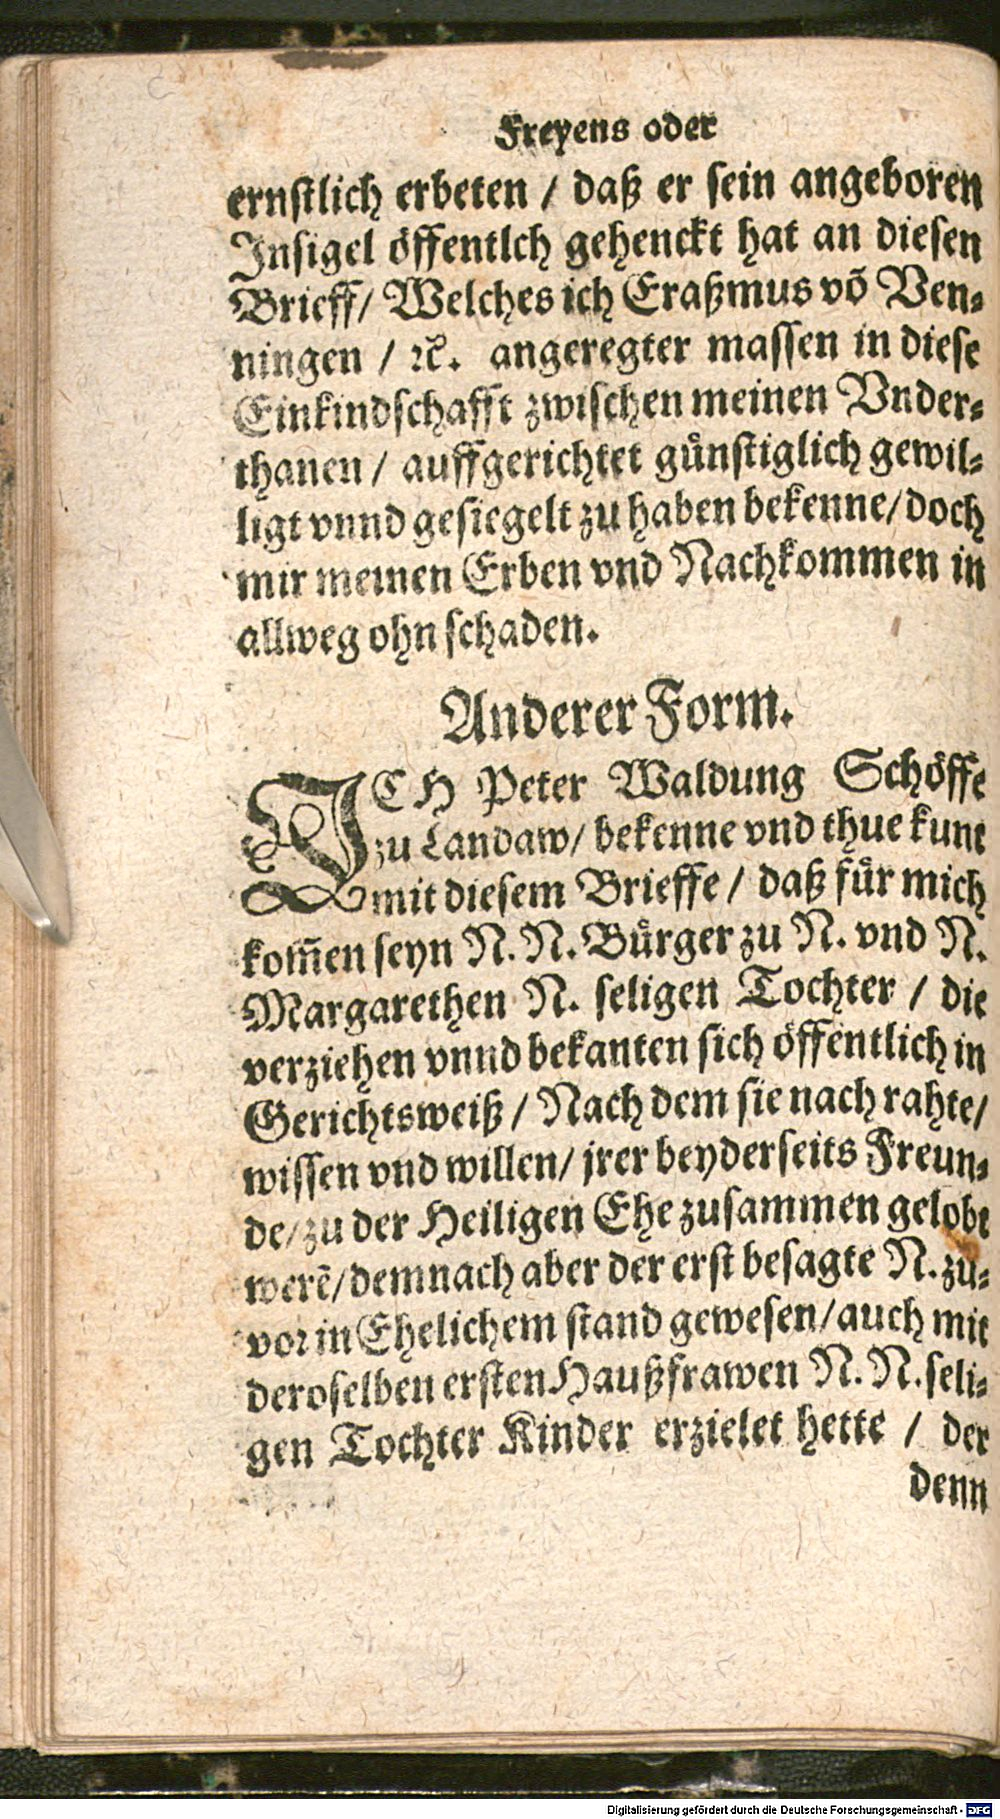 Freyens oder
ernſtlich erbeten / daß er ſein angeboren
Inſigel öffentlch gehenckt hat an dieſen
Brieff/ Welches ich Eraßmus võ Ven⸗
ningen / ꝛc. angeregter maſſen in dieſe
Einkindſchafft zwiſchen meinen Vnder⸗
thanen / auffgerichtet günſtiglich gewil⸗
ligt vnnd geſiegelt zu haben bekenne/ doch
mir meinen Erben vnd Nachkommen in
allweg ohn ſchaden.
Anderer Form.
ICH Peter Waldung Schöffe
zu Landaw/ bekenne vnd thue kunt
mit dieſem Brieffe / daß für mich
kom̃en ſeyn N. N. Bürger zu N. vnd N.
Margarethen N. ſeligen Tochter / die
verziehen vnnd bekanten ſich öffentlich in
Gerichtsweiß / Nach dem ſie nach rahte/
wiſſen vnd willen/ jrer beyderſeits Freun⸗
de/ zu der Heiligen Ehe zuſammen gelobt
werẽ/ demnach aber der erſt beſagte N. zu⸗
voꝛ in Ehelichem ſtand geweſen/ auch mit
deroſelben erſten Haußfrawen N. N. ſeli⸗
gen Tochter Kinder erzielet hette / der
denn
Digitalisierung gefördert durch die Deutsche Forschungsgemeinschaft - DFG